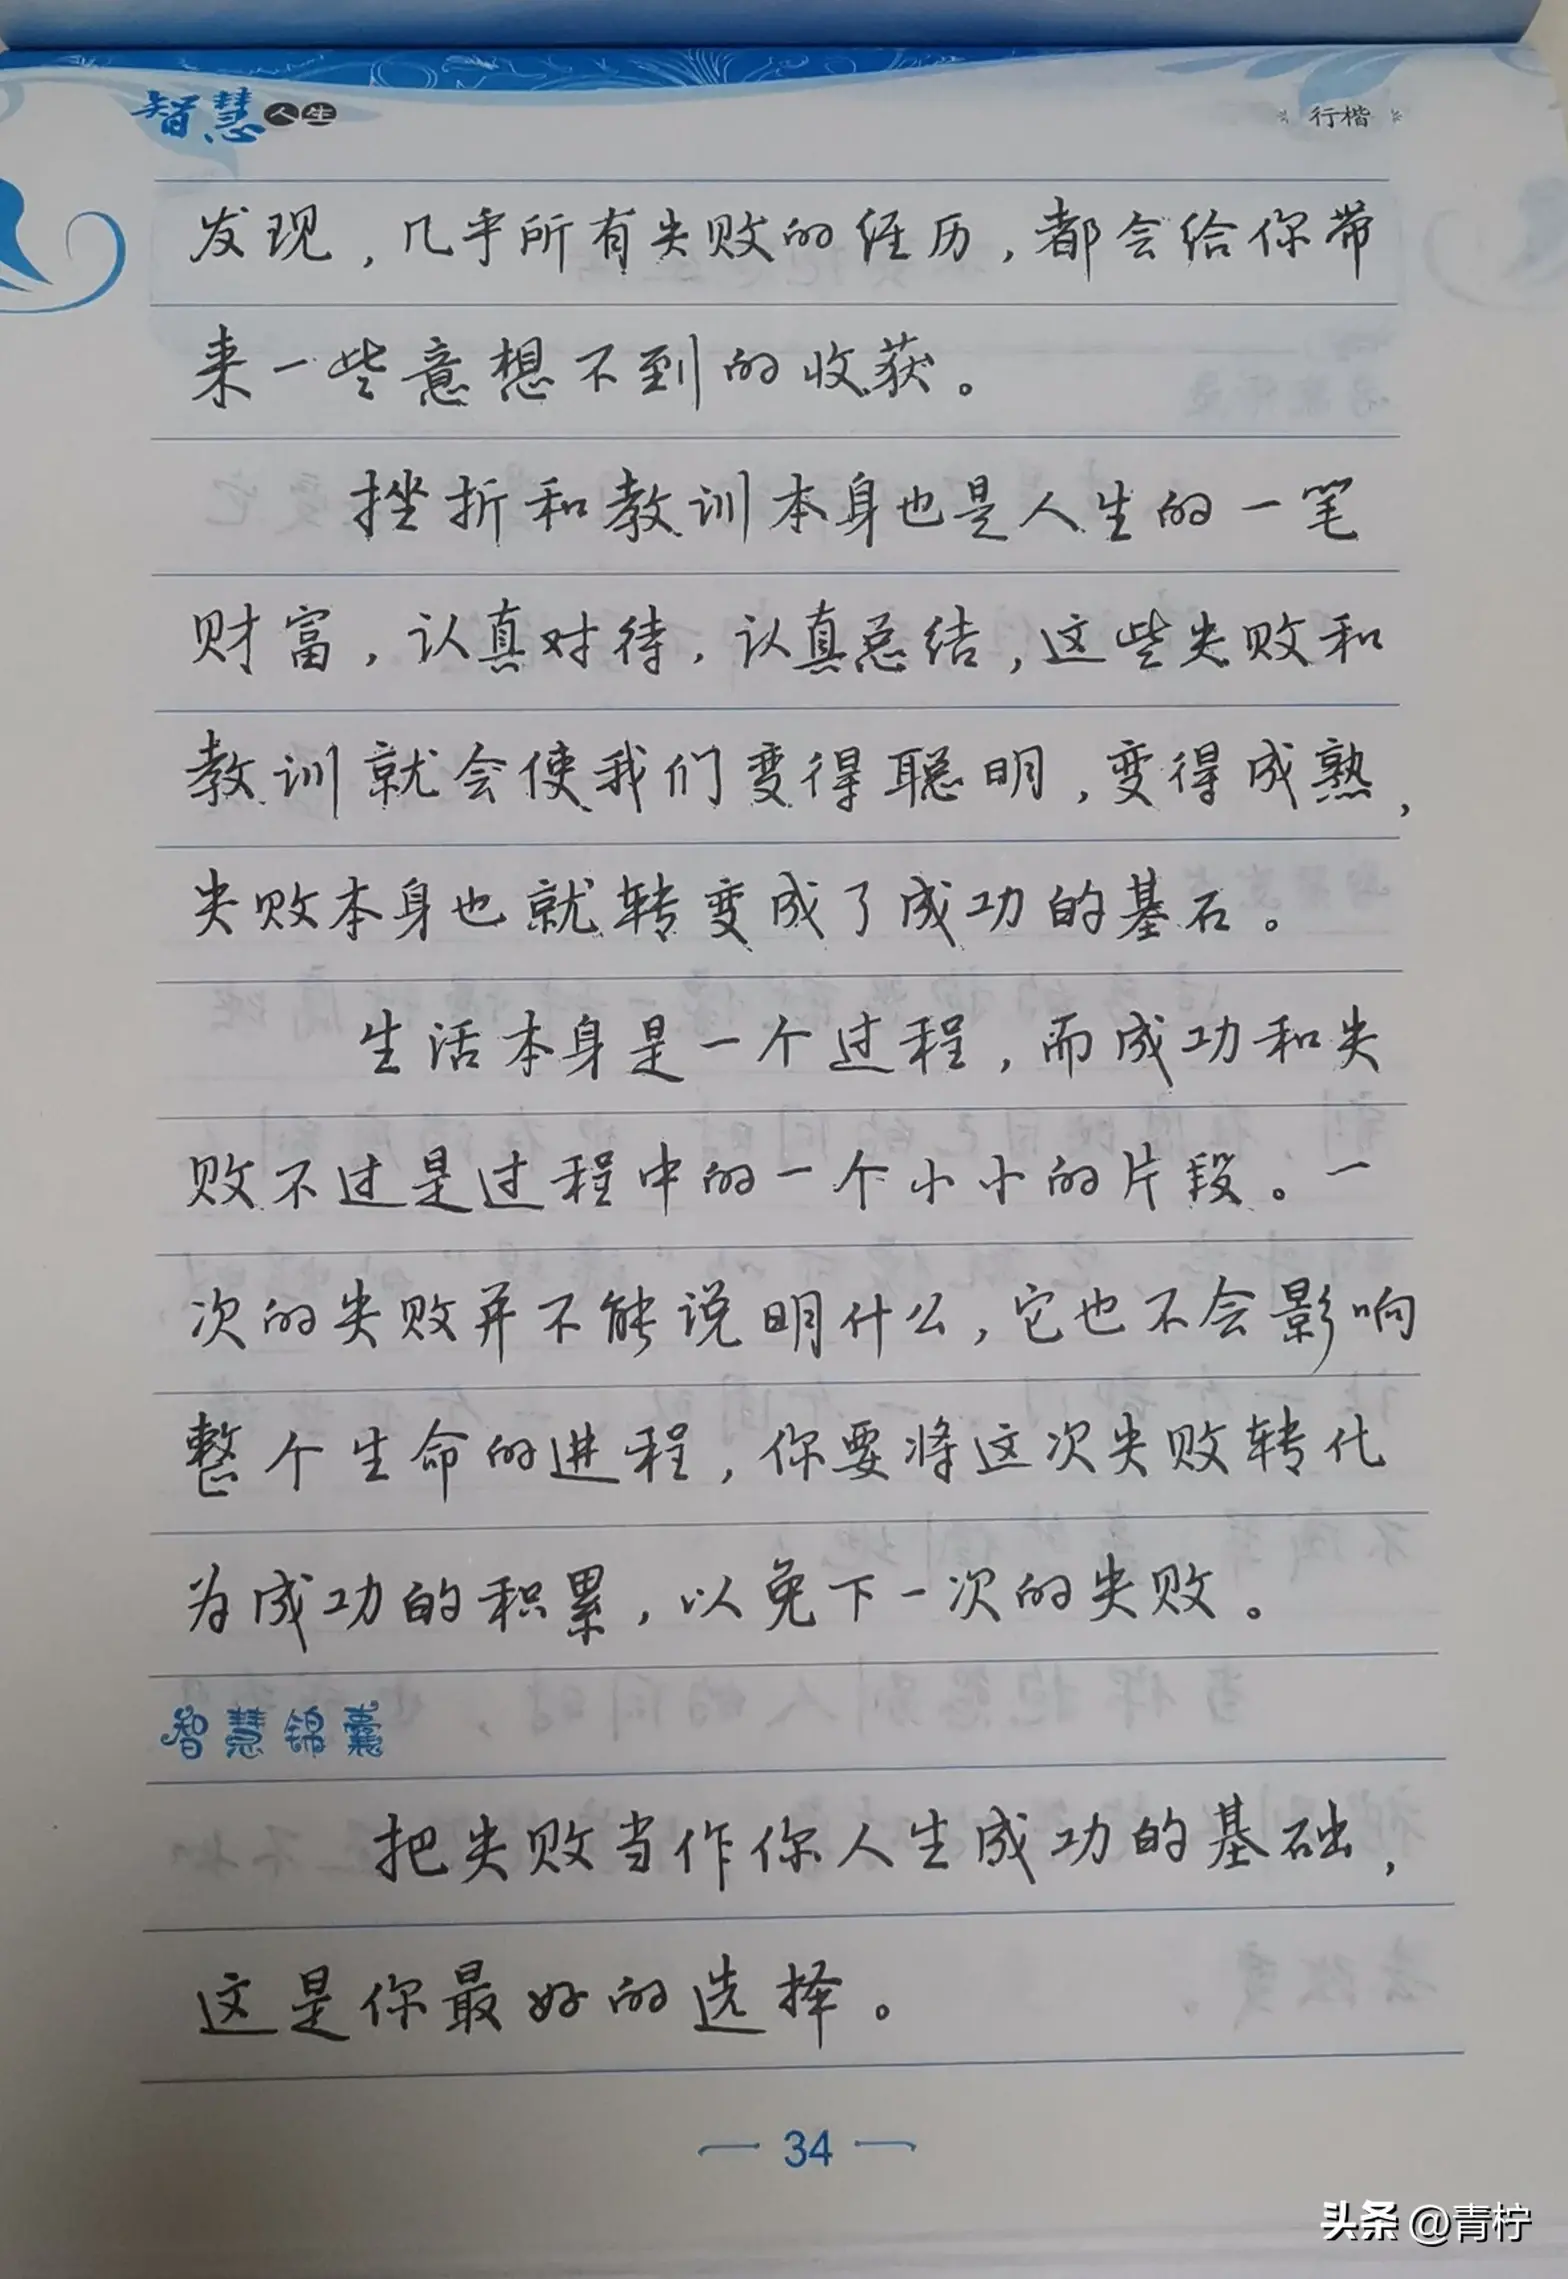 智慧人生
行楷
发现，几乎所有失败的经历，都会给你带
来一些意想不到的收获。
挫折和教训本身也是人生的一笔
财富，认真对待，认真总结，这些失败和
教训就会使我们变得聪明，变得成熟，
失败本身也就转变成了成功的基石。
生活本身是一个过程，而成功和失
败不过是过程中的一个小小的片段。一
次的失败并不能说明什么，它也不会影响
整个生命的进程，你要将这次失败转化
为成功的积累，以免下一次的失败。
智慧锦囊
把失败当作你人生成功的基础，
这是你最好的选择。
34
头条 @青柠